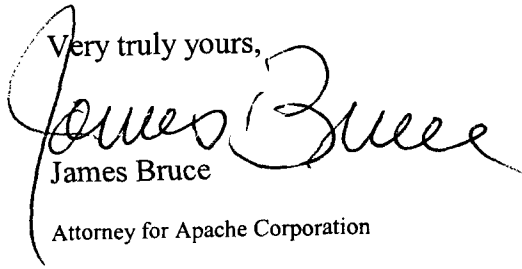 Very truly yours,
James Bruce
James Bruce
Attorney for Apache Corporation